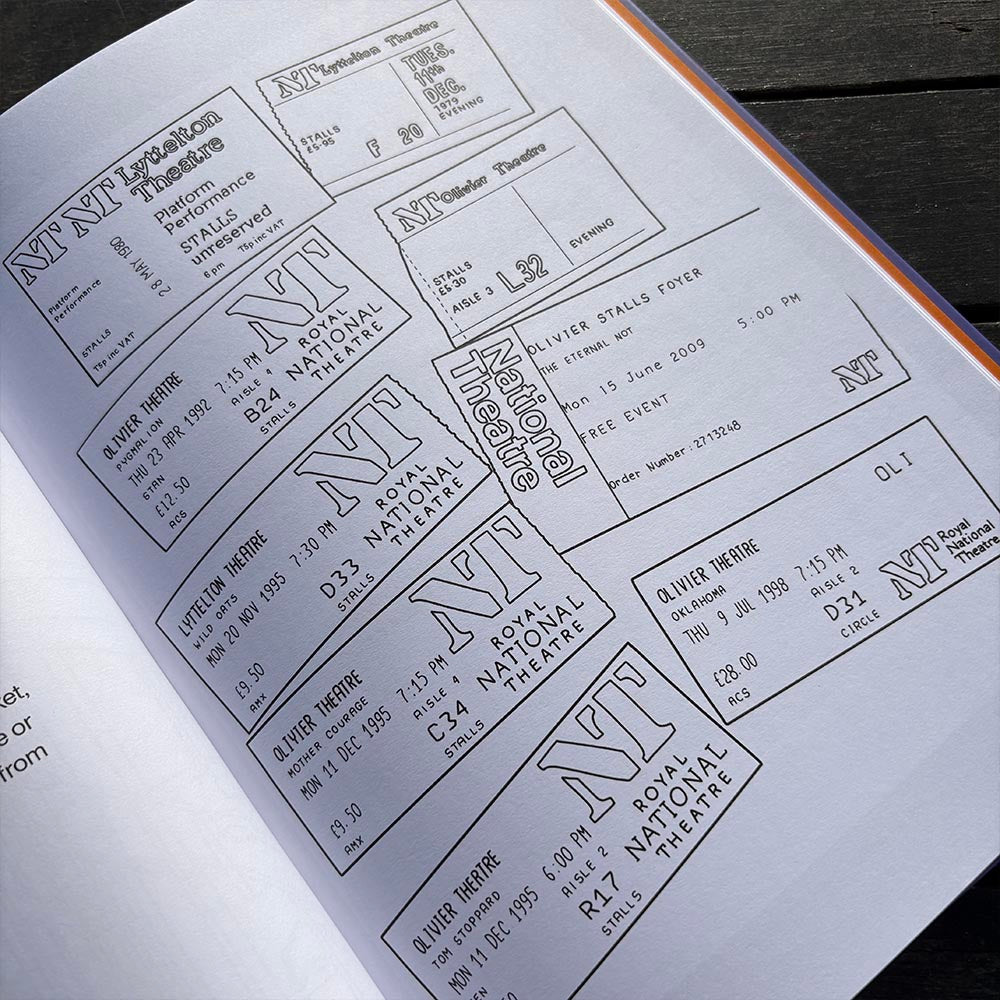 NT Lyttelton Theatre
TUES.
11th
DEC.
1979
EVENING
STALLS
£5·95
F 20
NT NT Lyttelton
Theatre
Platform
Performance
STALLS
unreserved
6 pm 75p inc VAT
28 MAY 1980
Platform
Performance
STALLS
75p inc VAT
NT Olivier Theatre
STALLS
£6·30
AISLE 3 L32
EVENING
NT
ROYAL
NATIONAL
THEATRE
OLIVIER THEATRE
PYGMALION
THU 23 APR 1992 7:15 PM
AISLE 4
B24
STALLS
STAN
£12.50
ACS
National
Theatre
OLIVIER STALLS FOYER
THE ETERNAL NOT
5:00 PM
Mon 15 June 2009
FREE EVENT
Order Number:2713248
NT
NT
ROYAL
NATIONAL
THEATRE
LYTTELTON THEATRE
WILD OATS
MON 20 NOV 1995 7:30 PM
D33
STALLS
£9.50
AMX
NT
ROYAL
NATIONAL
THEATRE
OLIVIER THEATRE
MOTHER COURAGE
MON 11 DEC 1995 7:15 PM
AISLE 4
C34
STALLS
£9.50
AMX
OLI
OLIVIER THEATRE
OKLAHOMA
THU 9 JUL 1998 7:15 PM
AISLE 2
D31
CIRCLE
£28.00
ACS
NT Royal
National
Theatre
NT
ROYAL
NATIONAL
THEATRE
OLIVIER THEATRE
TOM STOPPARD
MON 11 DEC 1995 6:00 PM
AISLE 2
R17
STALLS
ket,
e or
from